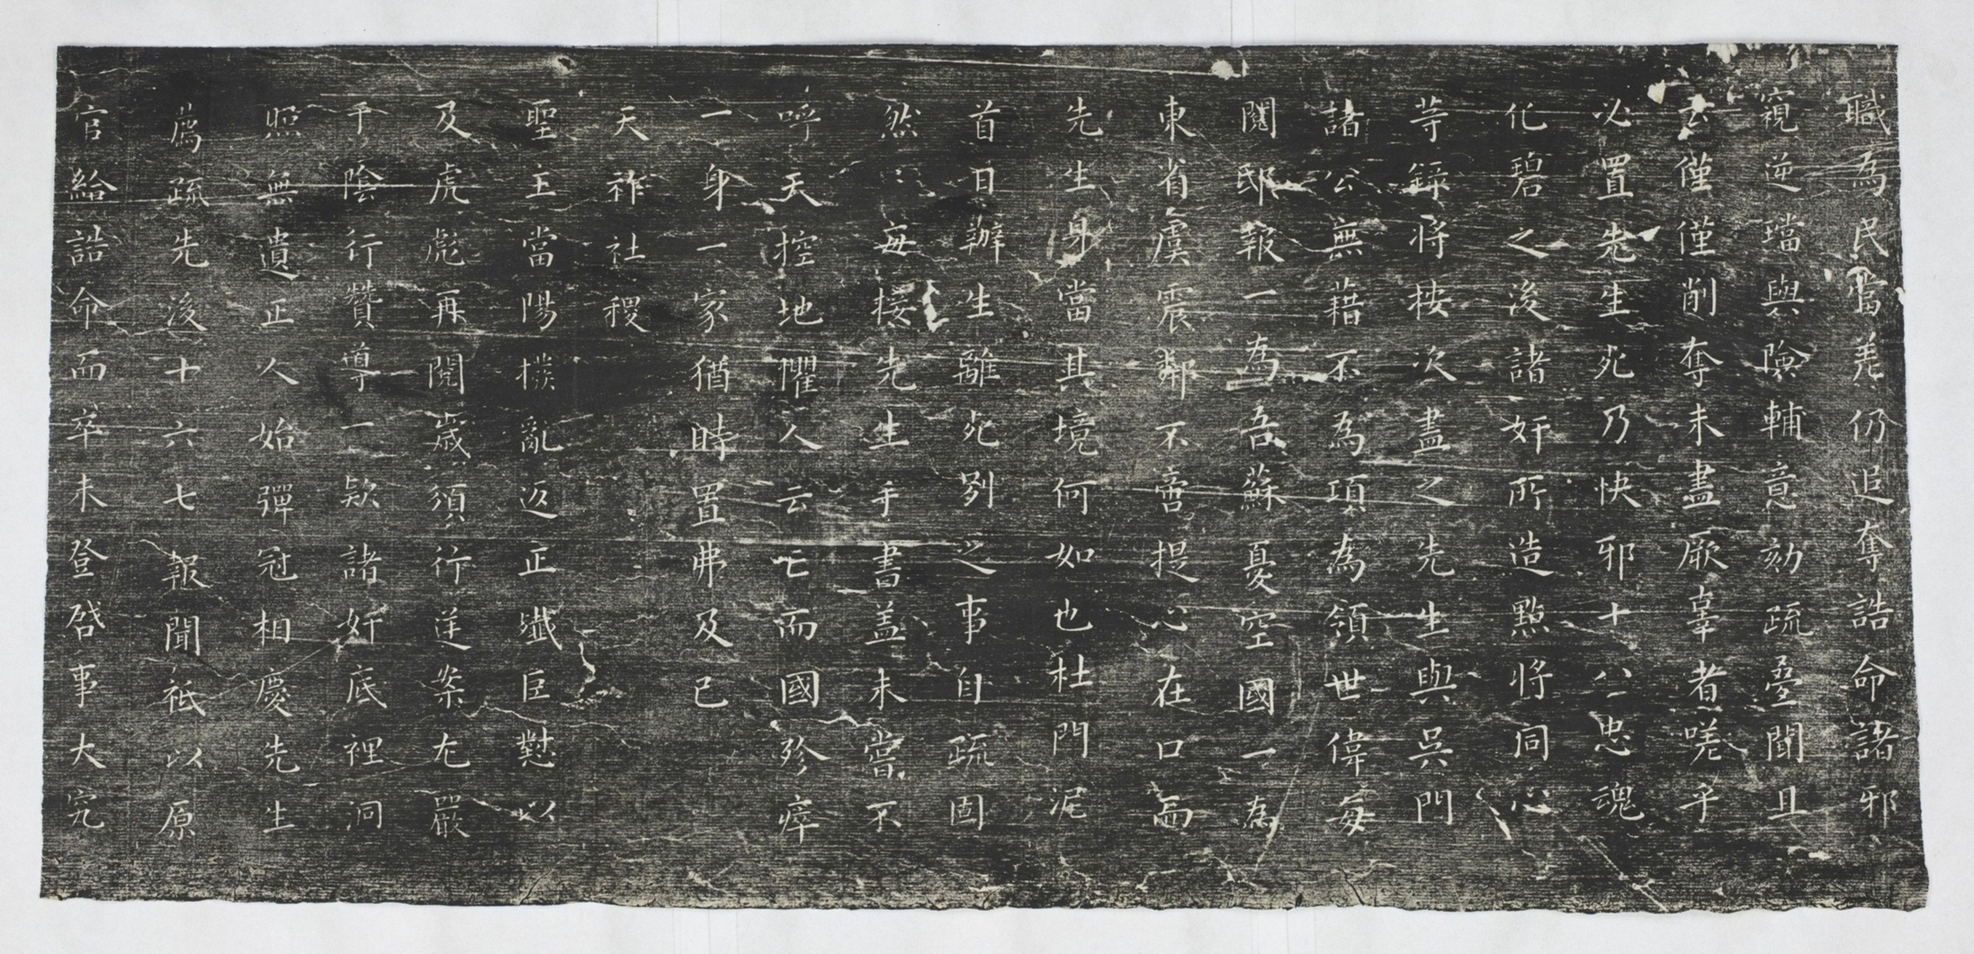 職為民當差仍追奪誥命諸邪
窺逆璫與險輔意劾疏疊聞且
云僅僅削奪未盡厥辜者嗟乎
必置先生死乃快邪十八忠魂
化碧之後諸奸所造點將同心
等錄將按次盡之先生與吳門
諸公無藉不為項為領世偉每
閱邸報一為吾蘇憂空國一為
東省虞震鄰不啻提心在口而
先生身當其境何如也杜門泥
首日辦生離死別之事自疏固
然每接先生手書盖未嘗不
呼天控地懼人云亡而國殄瘁
一身一家猶時置弗及已
天祚社稷
聖主當陽撲亂返正殲巨懟以
及虎彪再閱歲須行逆案尢嚴
于陰行贊導一欵諸奸底裡洞
照無遺正人始彈冠相慶先生
薦疏先後十六七報聞祇以原
官給誥命而卒未登啓事大完